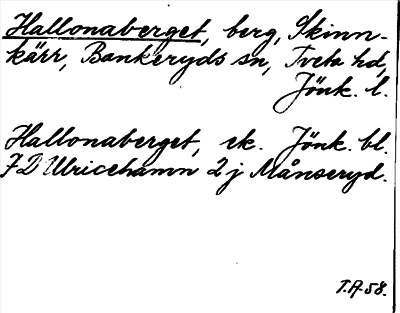 Hallonaberget, berg, Skinn-
kärr, Bankeryds sn, Tveta hd,
Jönk. l.
Hallonaberget, ek. Jönk. bl.
7D Ulricehamn 2 j Månseryd.
T.A. 58.